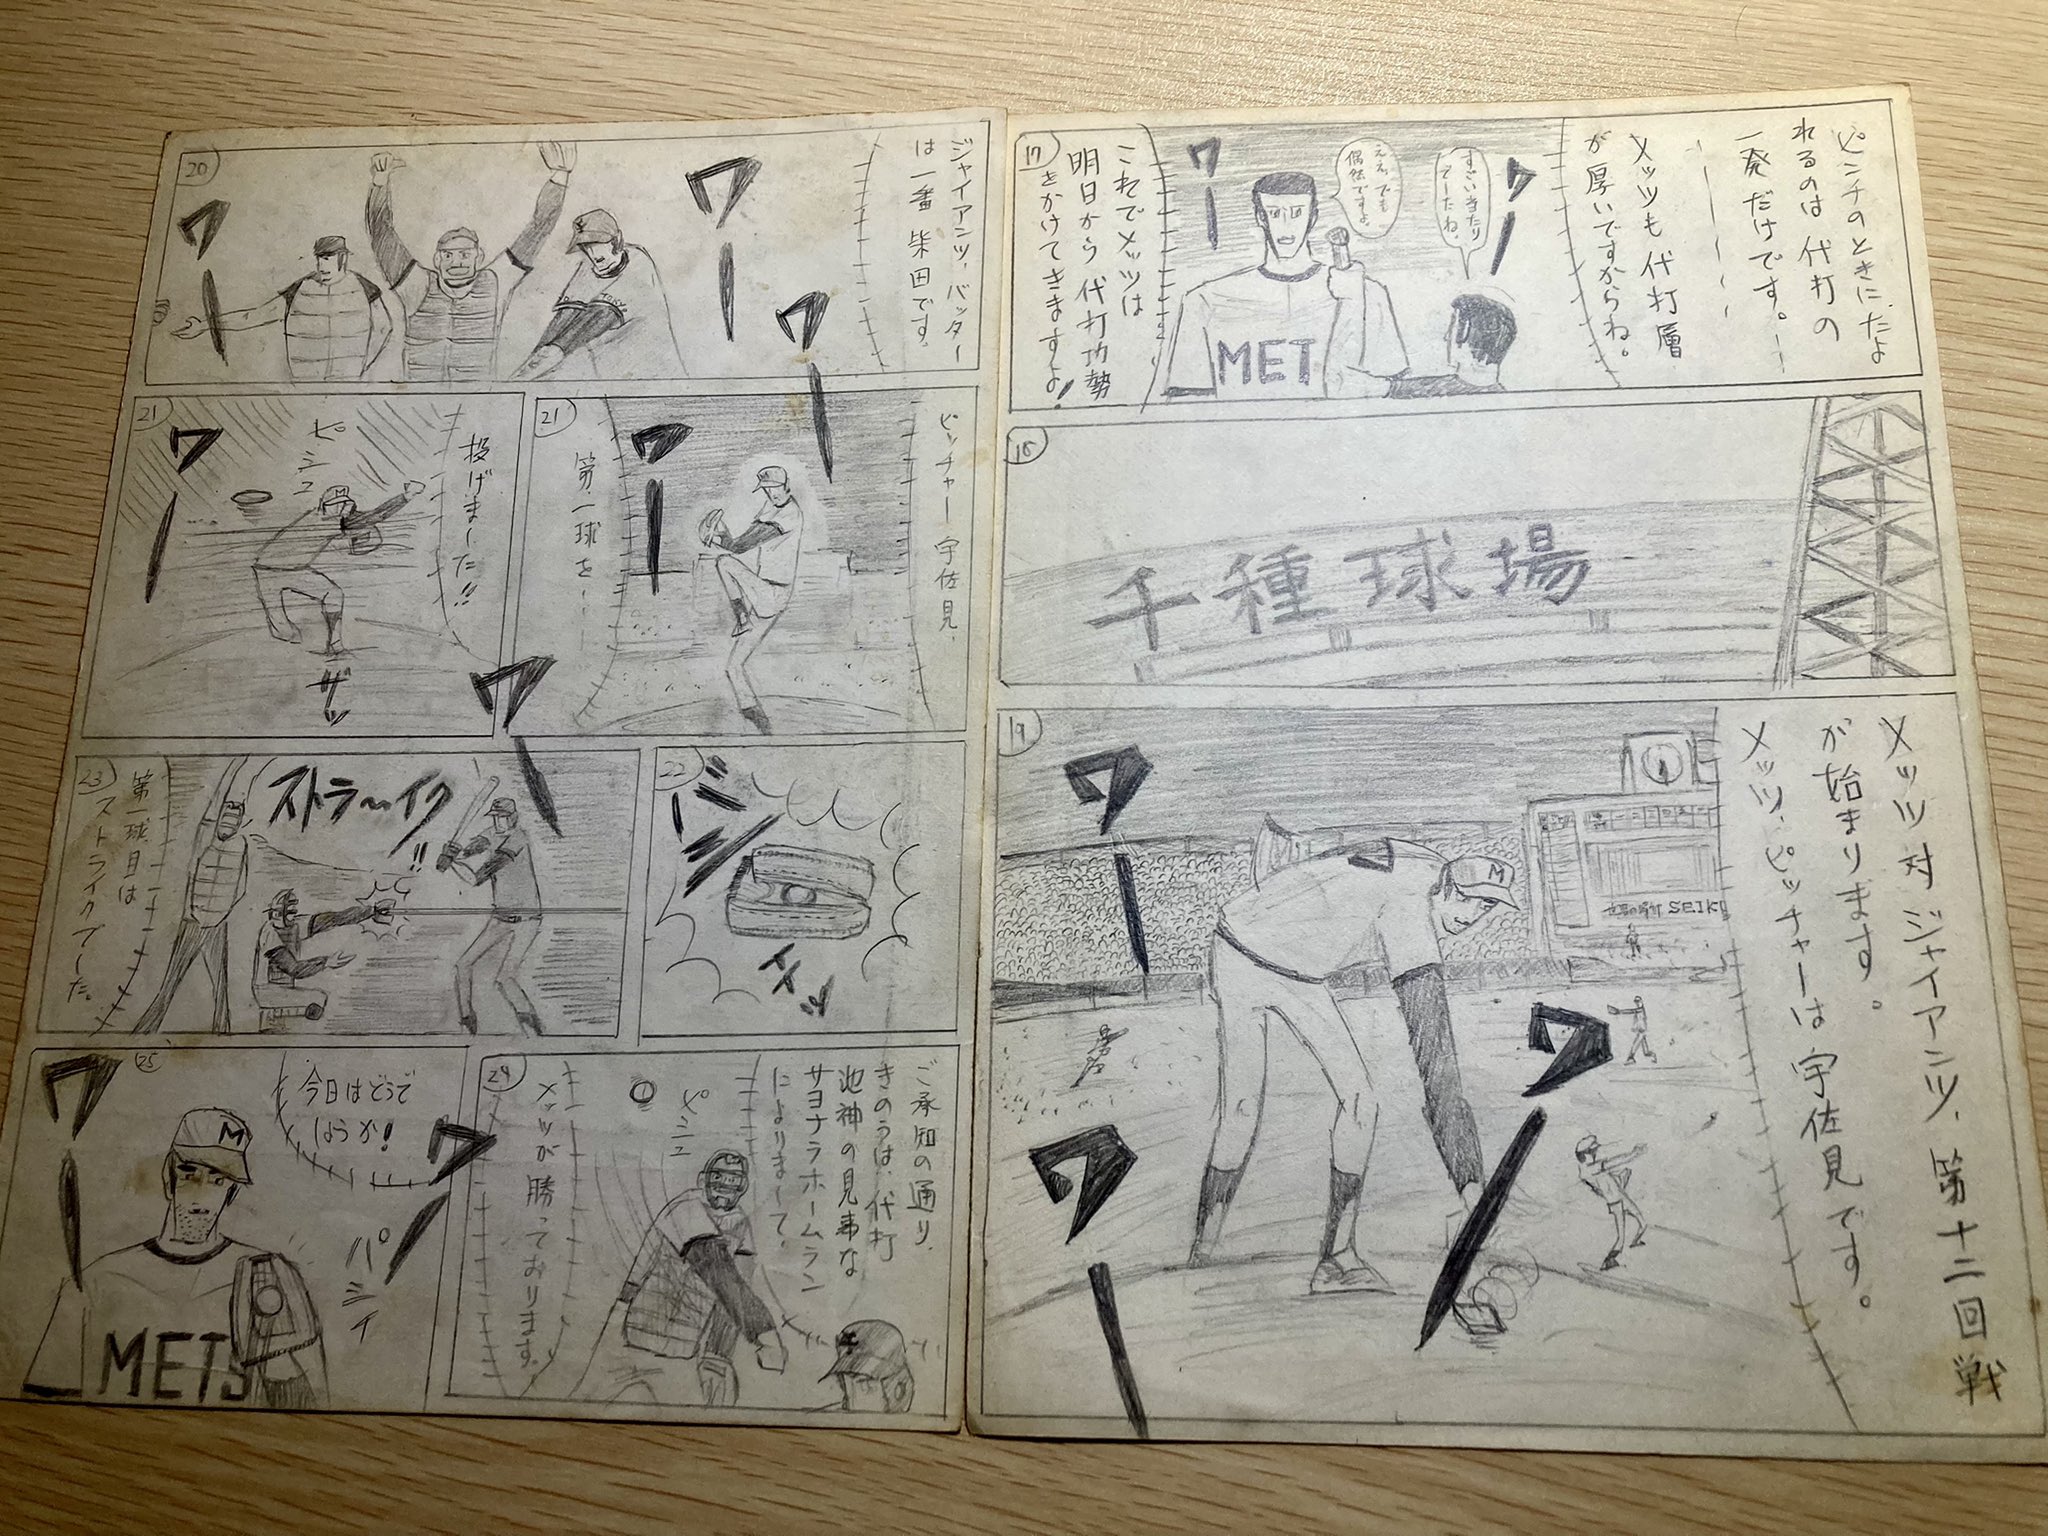 ピンチのときにたよ
れるのは代打の
一発だけです。――
メッツも代打層
が厚いですからね。
ワー
すごい当たり
でーたね。
ええ、でも
偶然ですよ。
ワー
MET
これでメッツは
明日から代打攻勢
をかけてきますよ!
17
18
千種球場
19
メッツ対ジャイアンツ、第十二回戦
が始まります。
メッツ、ピッチャーは宇佐見です。
SEIKO
M
ワー
ワー
ワー
20
ジャイアンツ、バッター
は一番柴田です。
ワー
ワー
ワー
21
ピッチャー宇佐見、
ワー
第一球を―
21
投げまーた!!
ピシュ
ワー
M
ザッ
22
バシ
ワー
23
ストラ〜イク!!
第一球目は
ストライクでーた。
24
ご承知の通り、
きのうは、代打
池神の見事な
サヨナラホームラン
によりまーて、
メッツが勝っております。
ピシュ
25
今日はどうで
しょうか!
ワー
ワー
パシィ
M
METS